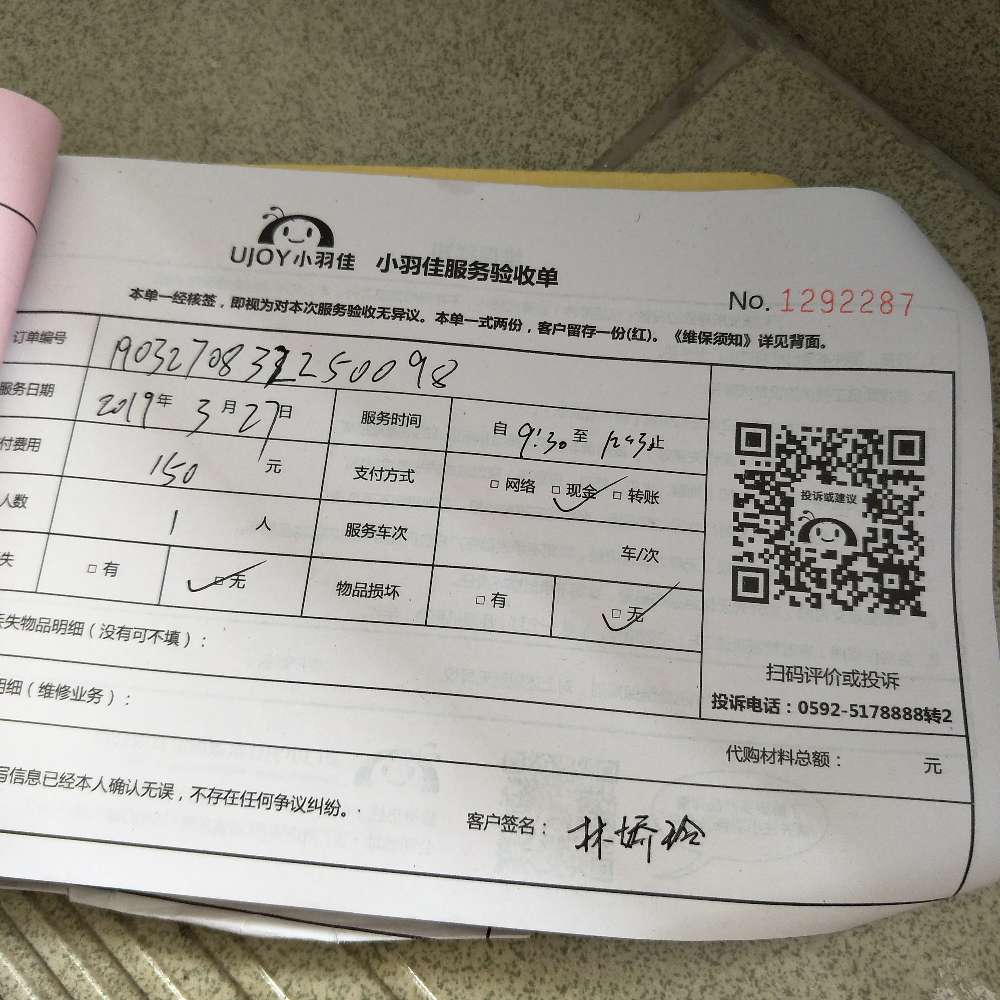 UJOY小羽佳 小羽佳服务验收单
No. 1292287
本单一经核签，即视为对本次服务验收无异议。本单一式两份，客户留存一份(红)。《维保须知》详见背面。
订单编号 190327083
服务日期 2019年 3月27日 服务时间 自 9:30 至 止
付费用 150 元 支付方式 □网络 □现金 □转账
人数 1 人 服务车次 车/次
失 □有 □无 物品损坏 □有 □无
失物品明细（没有可不填）：
明细（维修业务）：
投诉或建议
扫码评价或投诉
投诉电话：0592-5178888转2
代购材料总额： 元
写信息已经本人确认无误，不存在任何争议纠纷。
客户签名：林娇玲